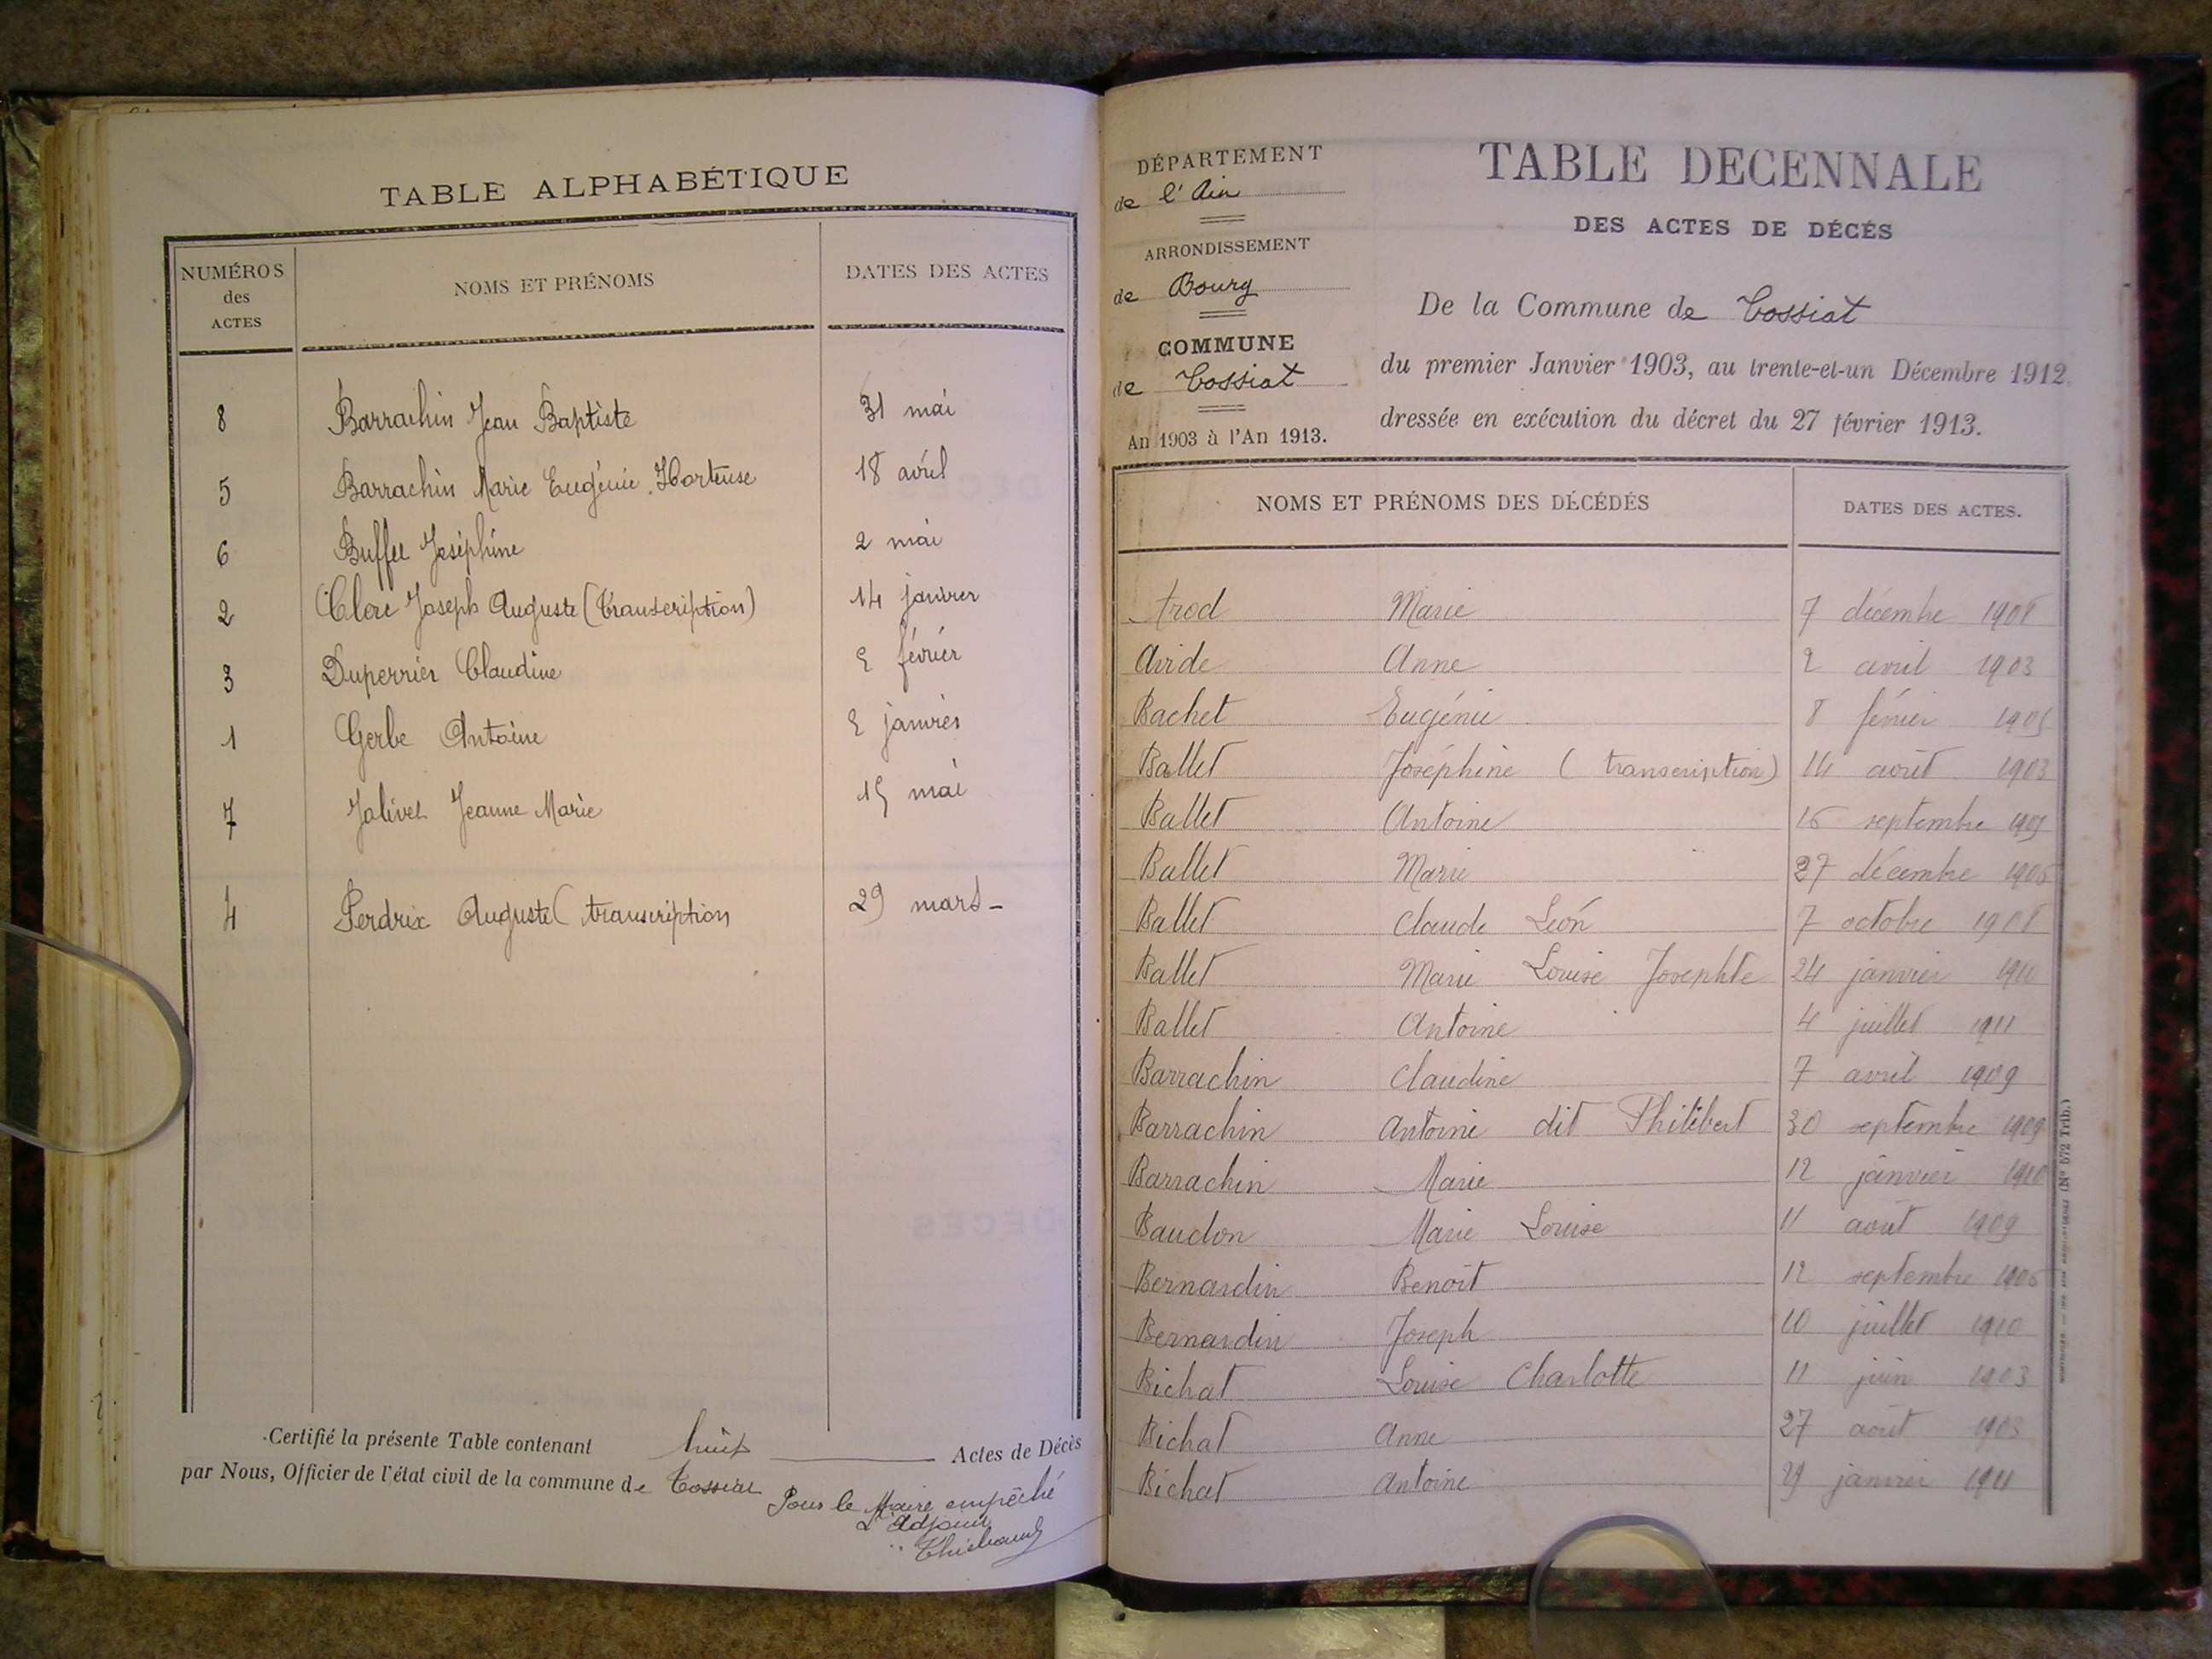 TABLE ALPHABÉTIQUE
NUMÉROS des ACTES NOMS ET PRÉNOMS DATES DES ACTES
8 Barrachin Jean Baptiste 31 mai
5 Barrachin Marie Eugénie Hortense 18 avril
6 Buffet Joséphine 2 mai
2 Clerc Joseph Auguste (Transcription) 14 janvier
3 Duperrier Claudine 2 février
1 Gerbe Antoine 2 janvier
7 Jolivet Jeanne Marie 15 mai
4 Perdrix Auguste (transcription 29 mars -
Certifié la présente Table contenant huit Actes de Décès
par Nous, Officier de l'état civil de la commune de Tossiat
Pour le Maire empêché
L'Adjoint
Thiebaud
DÉPARTEMENT
de l'Ain
ARRONDISSEMENT
de Bourg
COMMUNE
de Tossiat
An 1903 à l'An 1913.
TABLE DECENNALE
DES ACTES DE DÉCÉS
De la Commune de Tossiat
du premier Janvier 1903, au trente-et-un Décembre 1912
dressée en exécution du décret du 27 février 1913.
NOMS ET PRÉNOMS DES DÉCÉDÉS DATES DES ACTES.
Arod Marie 7 décembre 1908
Avide Anne 2 avril 1903
Bachet Eugénie 8 février 1905
Ballet Joséphine (transcription) 14 août 1903
Ballet Antoine 16 septembre 1905
Ballet Marie 27 décembre 1906
Ballet Claude Léon 7 octobre 1908
Ballet Marie Louise Josephte 24 janvier
Ballet Antoine 4 juillet 1911
Barrachin Claudine 7 avril 1909
Barrachin Antoine dit Philibert 30 septembre 1909
Barrachin Marie 12 janvier 1910
Baudon Marie Louise 11 août 1909
Bernardin Benoît 12 septembre 1906
Bernardin Joseph 10 juillet 1910
Bichat Louise Charlotte 11 juin 1903
Bichat Anne 27 août 1903
Bichat Antoine 29 janvier 1911
(N° 572 Trib.)